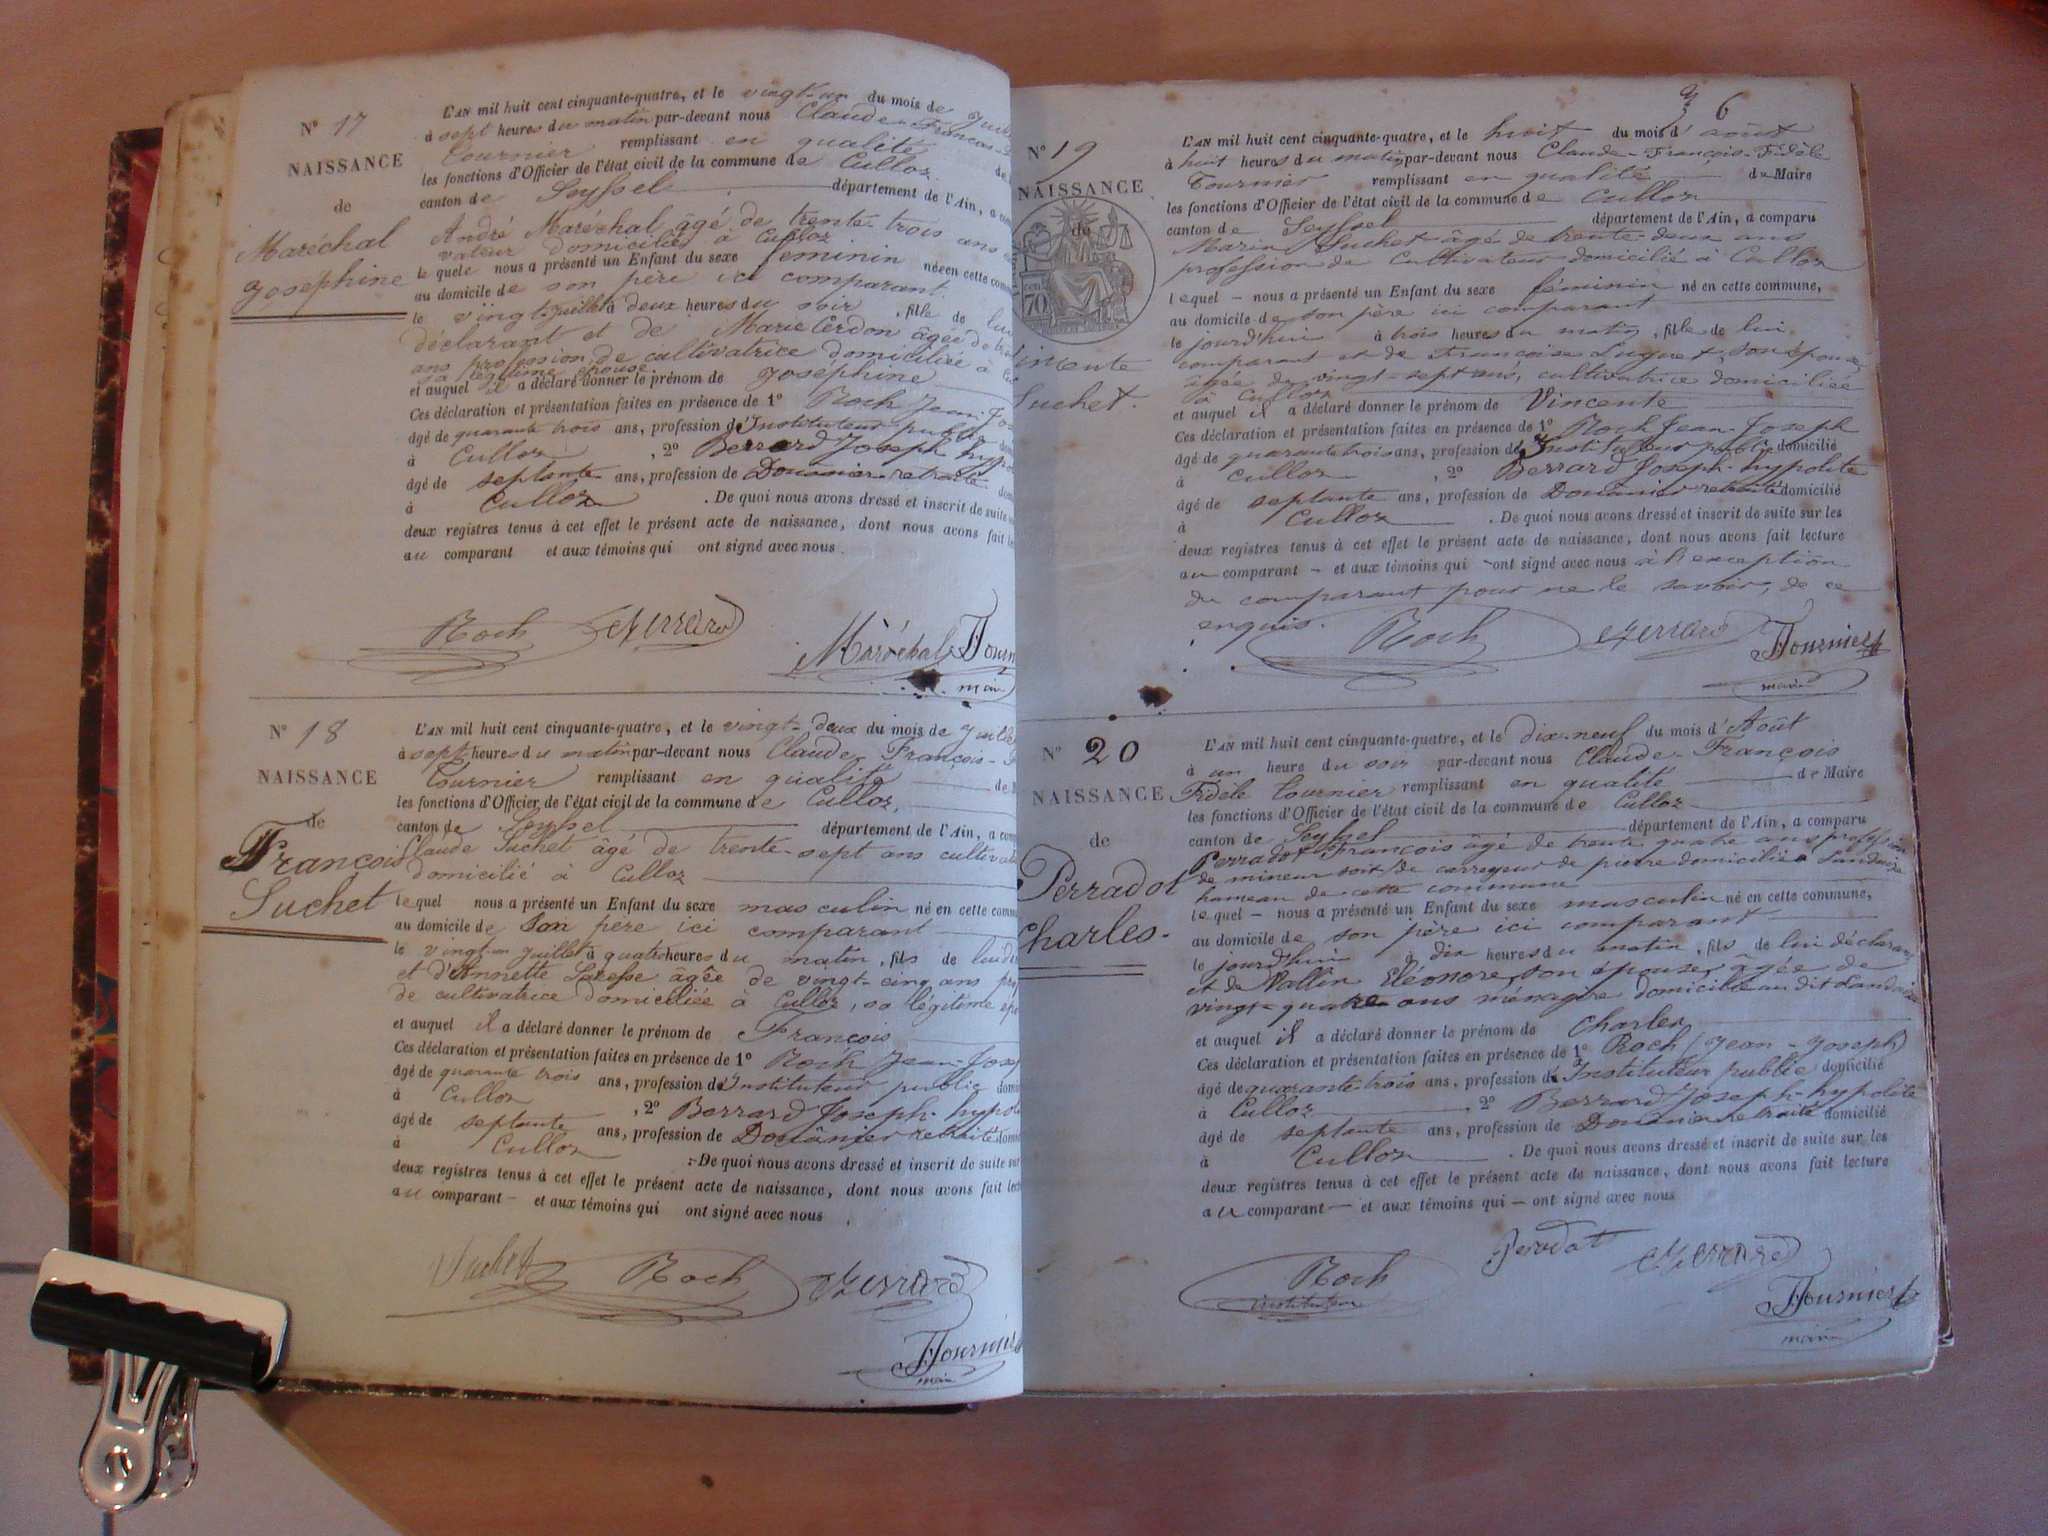 Nº 17
NAISSANCE
de
Maréchal
Josephine
L'AN mil huit cent cinquante-quatre, et le vingt-un du mois de
à sept heures du matin par-devant nous Claude-François-
Tournier remplissant en qualité de
les fonctions d'Officier de l'état civil de la commune de Culloz
canton de Seyssel département de l'Ain, a
André Maréchal âgé de trente-trois ans
vateur domicilié à Culloz
le quel nous a présenté un Enfant du sexe féminin née en cette
au domicile de son père ici comparant.
le vingt-juillet à deux heures du soir, fille de lui
déclarant et de Marie Cerdon âgée de
ans profession de cultivatrice domiciliée à
sa légitime épouse
et auquel il a déclaré donner le prénom de Josephine
Ces déclaration et présentation faites en présence de 1º Roch Jean-
âgé de quarante trois ans, profession d'Instituteur public
à Culloz, 2º Berrard Joseph
âgé de septante ans, profession de Douânier retraité
à Culloz. De quoi nous avons dressé et inscrit de suite
deux registres tenus à cet effet le présent acte de naissance, dont nous avons fait
au comparant et aux témoins qui ont signé avec nous.
Roch Berrard
Maréchal
Nº 18
NAISSANCE
de
François
Suchet
L'AN mil huit cent cinquante-quatre, et le vingt-deux du mois de
à sept heures du matin par-devant nous Claude-François-
Tournier remplissant en qualité
les fonctions d'Officier de l'état civil de la commune de Culloz,
canton de Seyssel département de l'Ain, a
Claude Suchet âgé de trente-sept ans
domicilié à Culloz
lequel nous a présenté un Enfant du sexe masculin né en cette
au domicile de Son père ici comparant
le vingt-un juillet à quatre heures du matin, fils de
et d'Annette âgée de vingt-cinq ans
de cultivatrice domiciliée à Culloz, sa légitime
et auquel il a déclaré donner le prénom de François
Ces déclaration et présentation faites en présence de 1º Roch Jean-
âgé de quarante trois ans, profession d'Instituteur public
à Culloz, 2º Berrard Joseph-
âgé de septante ans, profession de Douânier retraité
à Culloz. De quoi nous avons dressé et inscrit de suite
deux registres tenus à cet effet le présent acte de naissance, dont nous avons fait
au comparant — et aux témoins qui ont signé avec nous
Suchet Roch Berrard
Tournier
maire
6
Nº 19
NAISSANCE
de
70
Suchet.
L'AN mil huit cent cinquante-quatre, et le huit du mois d'août
à huit heures du matin par-devant nous Claude-François-Fidèle
Tournier remplissant en qualité du Maire
les fonctions d'Officier de l'état civil de la commune de Culloz
canton de Seyssel département de l'Ain, a comparu
Marin Suchet âgé de trente-deux ans
profession de Cultivateur domicilié à Culloz
lequel — nous a présenté un Enfant du sexe féminin né en cette commune,
au domicile de son père ici comparant
le jourd'hui à trois heures du matin, fille de lui
comparant et de Françoise Luguet son épouse
âgée de vingt-sept ans, cultivatrice domiciliée
à Culloz
et auquel il a déclaré donner le prénom de Vincente
Ces déclaration et présentation faites en présence de 1º Roch Jean-Joseph
âgé de quarante trois ans, profession d'Instituteur public domicilié
à Culloz, 2º Berrard Joseph-hypolite
âgé de septante ans, profession de Douânier retraité domicilié
à Culloz. De quoi nous avons dressé et inscrit de suite sur les
deux registres tenus à cet effet le présent acte de naissance, dont nous avons fait lecture
au comparant — et aux témoins qui — ont signé avec nous à l'exception
du comparant pour ne le savoir, de ce
enquis.
Roch Berrard Tournier
maire
Nº 20
NAISSANCE
de
Perradot
Charles.
L'AN mil huit cent cinquante-quatre, et le dix-neuf du mois d'Août
à un heure du soir par-devant nous Claude-François
Fidèle Tournier remplissant en qualité de Maire
les fonctions d'Officier de l'état civil de la commune de Culloz
canton de Seyssel département de l'Ain, a comparu
Perradot François âgé de trente quatre ans profession
de mineur soit de carreyeur de pierre domicilié à
hameau de cette commune
lequel — nous a présenté un Enfant du sexe masculin né en cette commune,
au domicile de son père ici comparant
le jourd'hui à dix heures du matin, fils de lui déclarant
et de Vallin Eléonore, son épouse, âgée de
vingt-quatre ans ménagère domiciliée au dit
et auquel il a déclaré donner le prénom de Charles
Ces déclaration et présentation faites en présence de 1º Roch (Jean-Joseph)
âgé de quarante trois ans, profession d'Instituteur public domicilié
à Culloz, 2º Berrard Joseph-hypolite
âgé de septante ans, profession de Douânier retraité domicilié
à Culloz. De quoi nous avons dressé et inscrit de suite sur les
deux registres tenus à cet effet le présent acte de naissance, dont nous avons fait lecture
au comparant — et aux témoins qui — ont signé avec nous
Perodat Berrard
Roch
instituteur
Tournier
maire